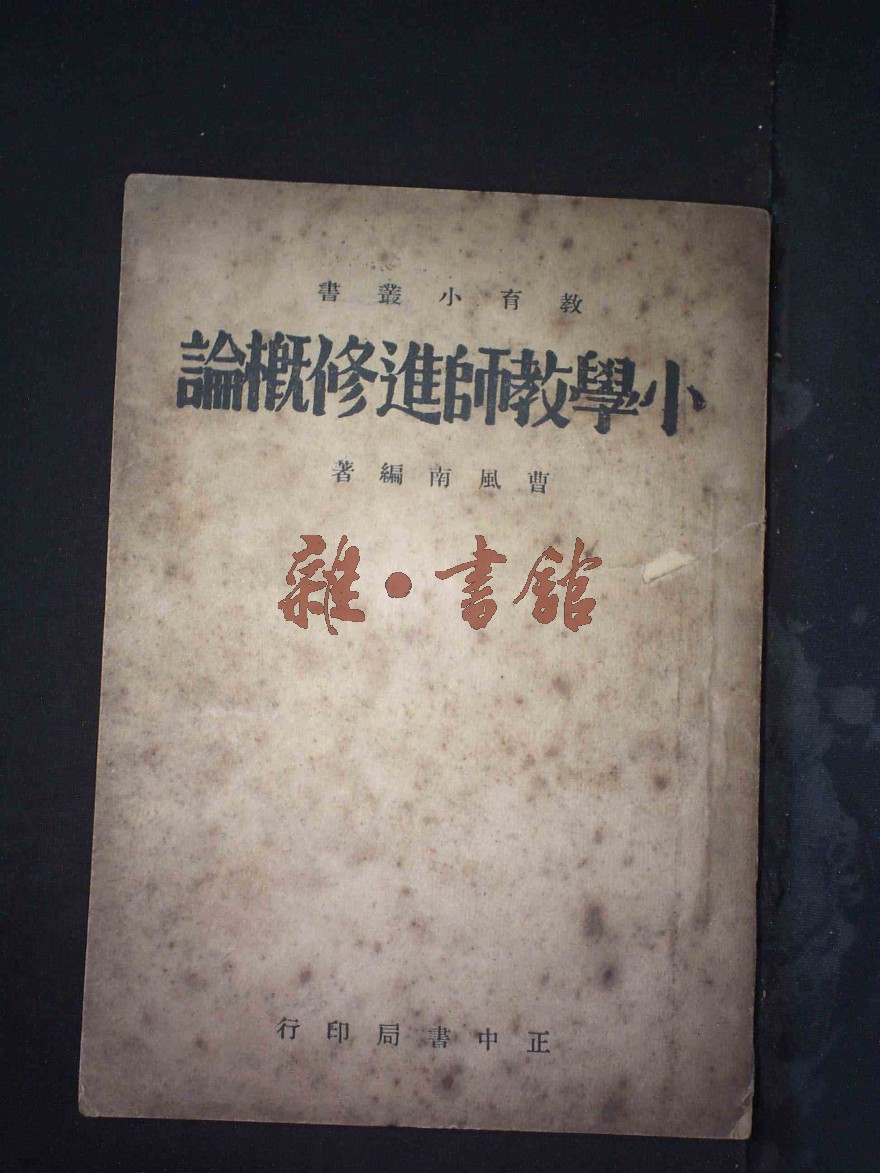 教育小叢書
小學教師進修概論
曹風南編著
雜·書館
正中書局印行